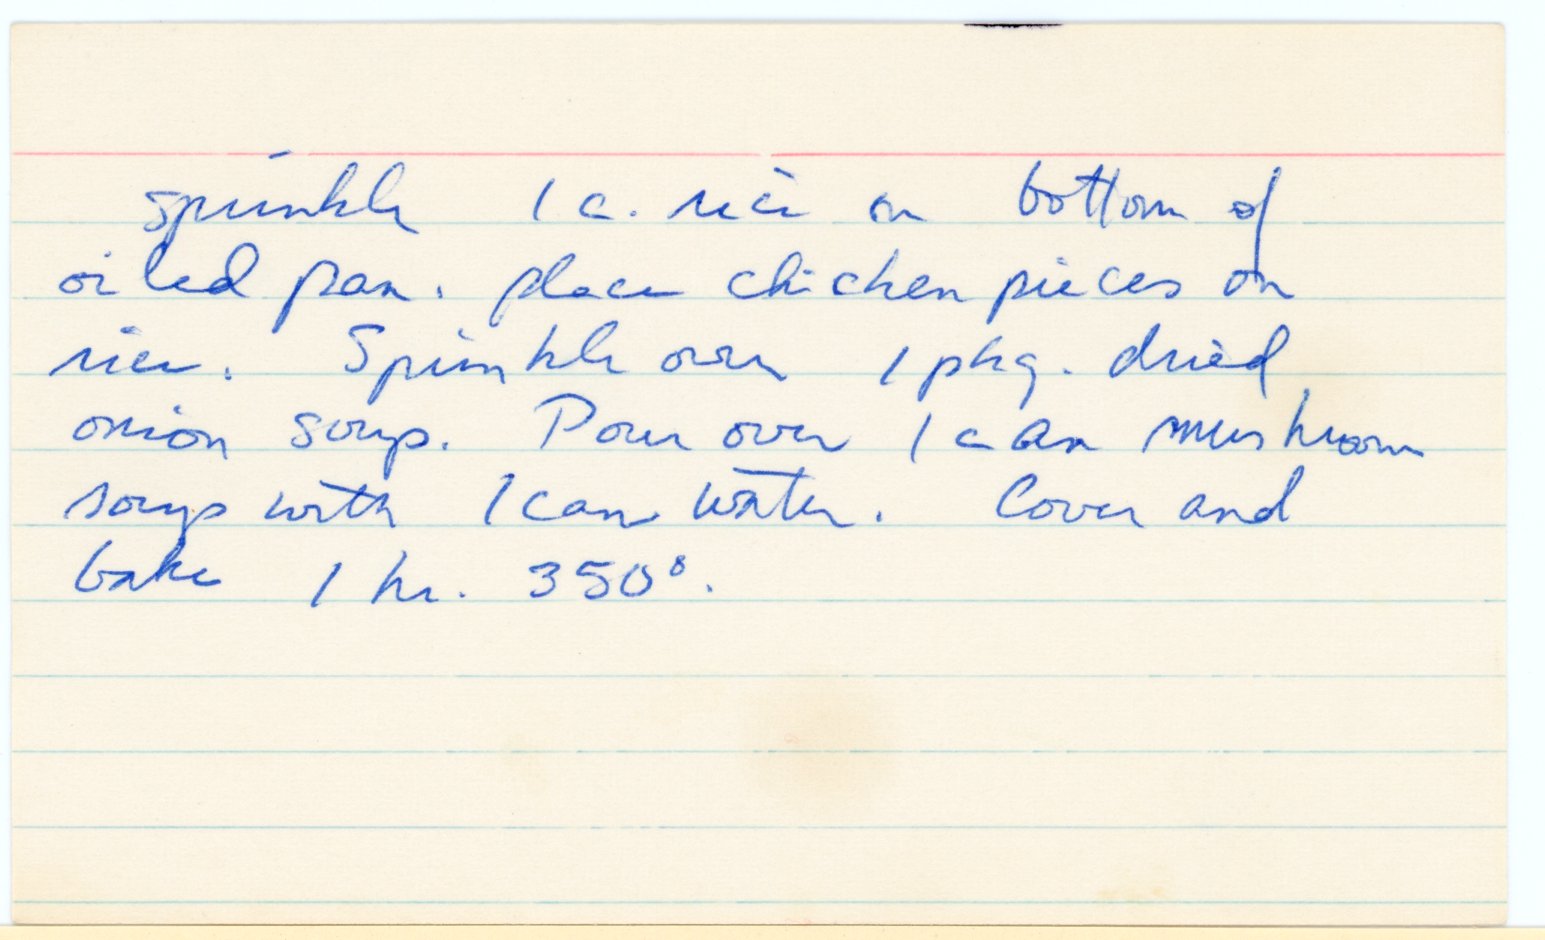 sprinkle 1 c. rice on bottom of
oiled pan. place chicken pieces on
rice. Sprinkle over 1 pkg. dried
onion soup. Pour over 1 can mushroom
soup with 1 can water. Cover and
bake 1 hr. 350°.